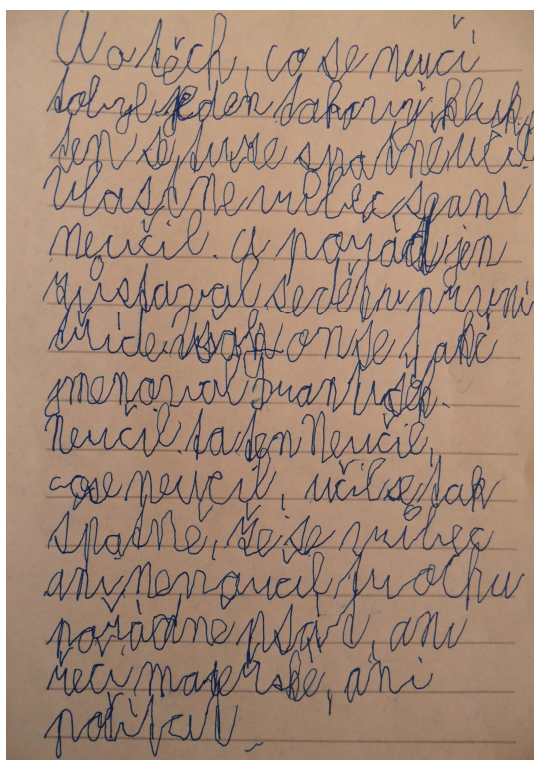 A o těch, co se neučí
dobře jeden takový kluk,
ten se tuze špatně učil.
Vlastně vůbec se ani
neučil. A pořád jen
zůstaval sedět v první
třídě on se také
menoval František
Neučil. ta ten Neučil,
co se neučil, učil se tak
špatně, že se vůbec
ani nenaučil trochu
pořádně psát, ani
řeči mateřské, ani
počítat